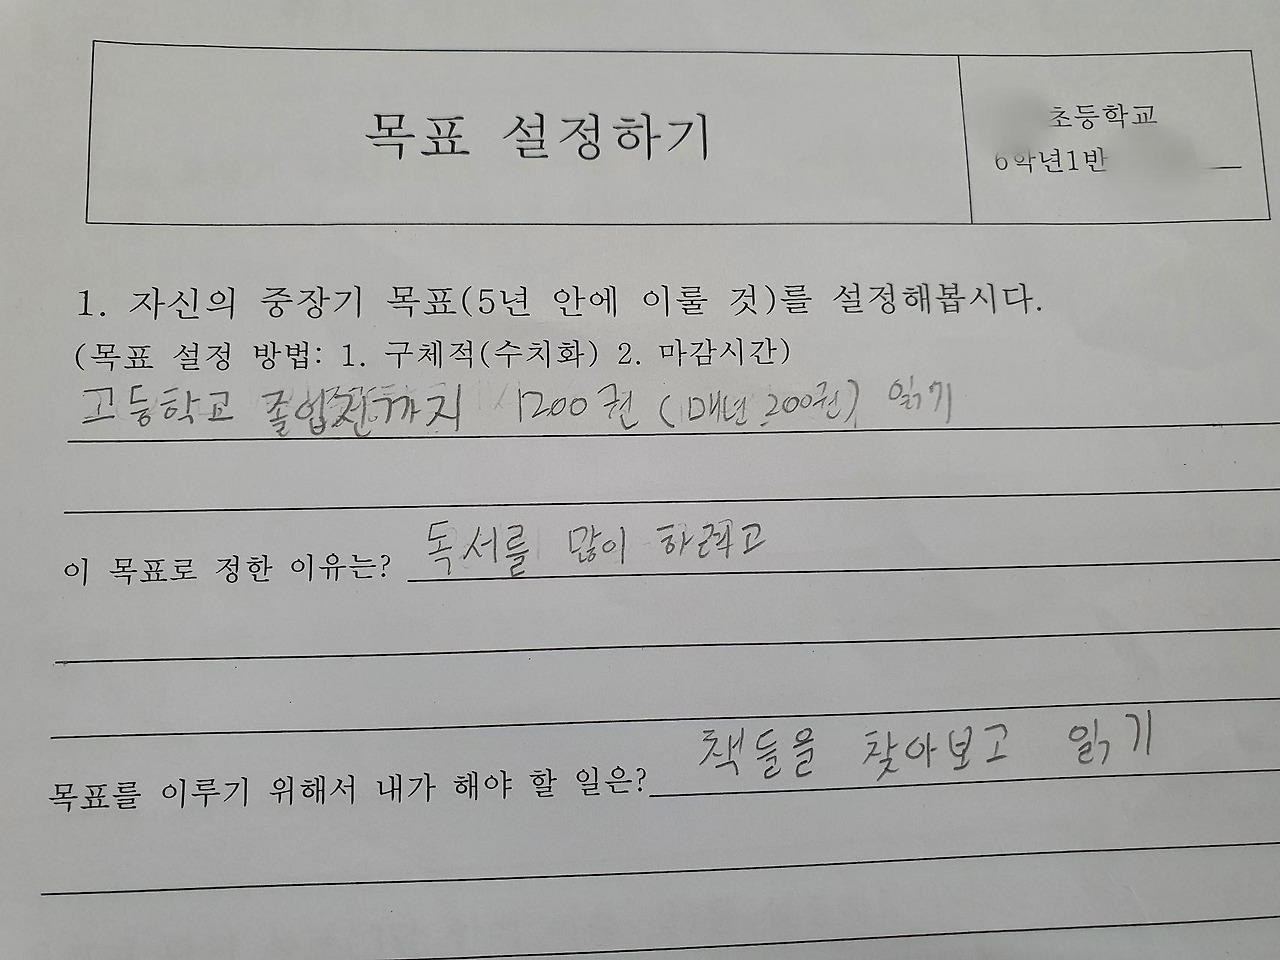 목표 설정하기
초등학교
6학년1반
1. 자신의 중장기 목표(5년 안에 이룰 것)를 설정해봅시다.
(목표 설정 방법: 1. 구체적(수치화) 2. 마감시간)
고등학교 졸업전까지 1200권 (매년 200권) 읽기
이 목표로 정한 이유는? 독서를 많이 하려고
목표를 이루기 위해서 내가 해야 할 일은? 책들을 찾아보고 읽기